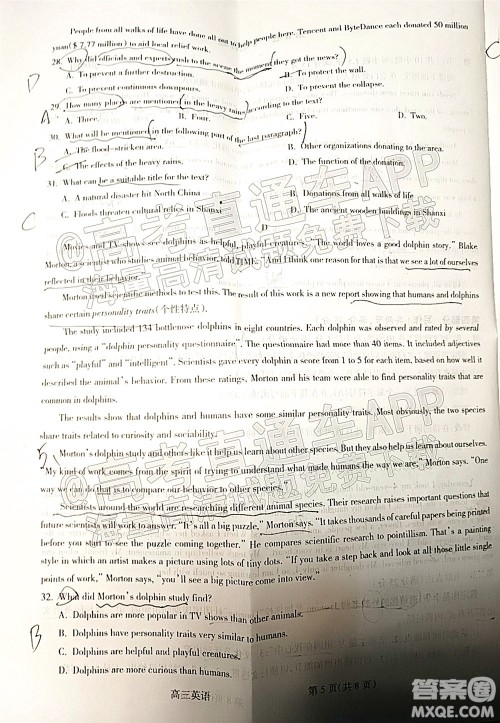 People from all walks of life have done all out to help people here. Tencent and ByteDance each donated 50 million
yuan($ 7.77 million) to aid local relief work.
28. Why did officials and experts rush to the scene the moment they got the news?
D
A. To prevent a further destruction.
B. To protect the wall.
C. To prevent continuous downpours.
D. To prevent the collapse.
29. How many places are mentioned in the heavy rains according to the text?
A
A. Three.
B. Four.
C. Five.
D. Two.
30. What will be mentioned in the following part of the last paragraph?
B
A. The flood-stricken area.
B. Other organizations donating to the area.
C. The effects of the heavy rains.
D. The function of the donation.
31. What can be a suitable title for the text?
A. A natural disaster hit North China
B. Donations from all walks of life
C
C. Floods threaten cultural relics in Shanxi
D. The ancient wooden buildings in Shanxi
D
Movies and TV show dolphins as helpful, playful creatures. "The world loves a good dolphin story," Blake
Morton, a scientist who studies animal behavior, told TIME. "And I think one reason for that is that we see a lot of ourselves
reflected in their behavior."
Morton used scientific methods to test this. The result of this work is a new report showing that humans and dolphins
share certain personality traits(个性特点).
The study included 134 bottlenose dolphins in eight countries. Each dolphin was observed and rated by several
people, using a "dolphin personality questionnaire". The questionnaire had more than 40 items. It included adjectives
such as "playful" and "intelligent". Scientists gave every dolphin a score from 1 to 5 for each item, based on how well it
described the animal's behavior. From these ratings, Morton and his team were able to find personality traits that are
common in dolphins.
The results show that dolphins and humans have some similar personality traits. Most obviously, the two species
share traits related to curiosity and sociability.
5
Morton's dolphin study and others like it help us learn about other species. But they also help us learn about ourselves.
"My kind of work comes from the spirit of trying to understand what made humans the way we are," Morton says. "One
way we can do that is to compare our behavior to other species."
Scientists around the world are researching different animal species. Their research raises important questions that
future scientists will work to answer. "It's all a big puzzle," Morton says. "It takes thousands of careful papers being printed
before you start to see the puzzle coming together." He compares scientific research to pointillism. That's a painting
style in which an artist makes a picture using lots of tiny dots. "If you take a step back and look at all those little single
points of work," Morton says, "you'll see a big picture come into view."
32. What did Morton's dolphin study find?
A. Dolphins are more popular in TV shows than other animals.
B
B. Dolphins have personality traits very similar to humans.
C. Dolphins are helpful and playful creatures.
D. Dolphins are more curious than humans.
高三英语 第 5 页(共 8 页)
@高考直通车APP
海量高清试题免费下载
@高考直通车APP
答案圈
MXQE.COM